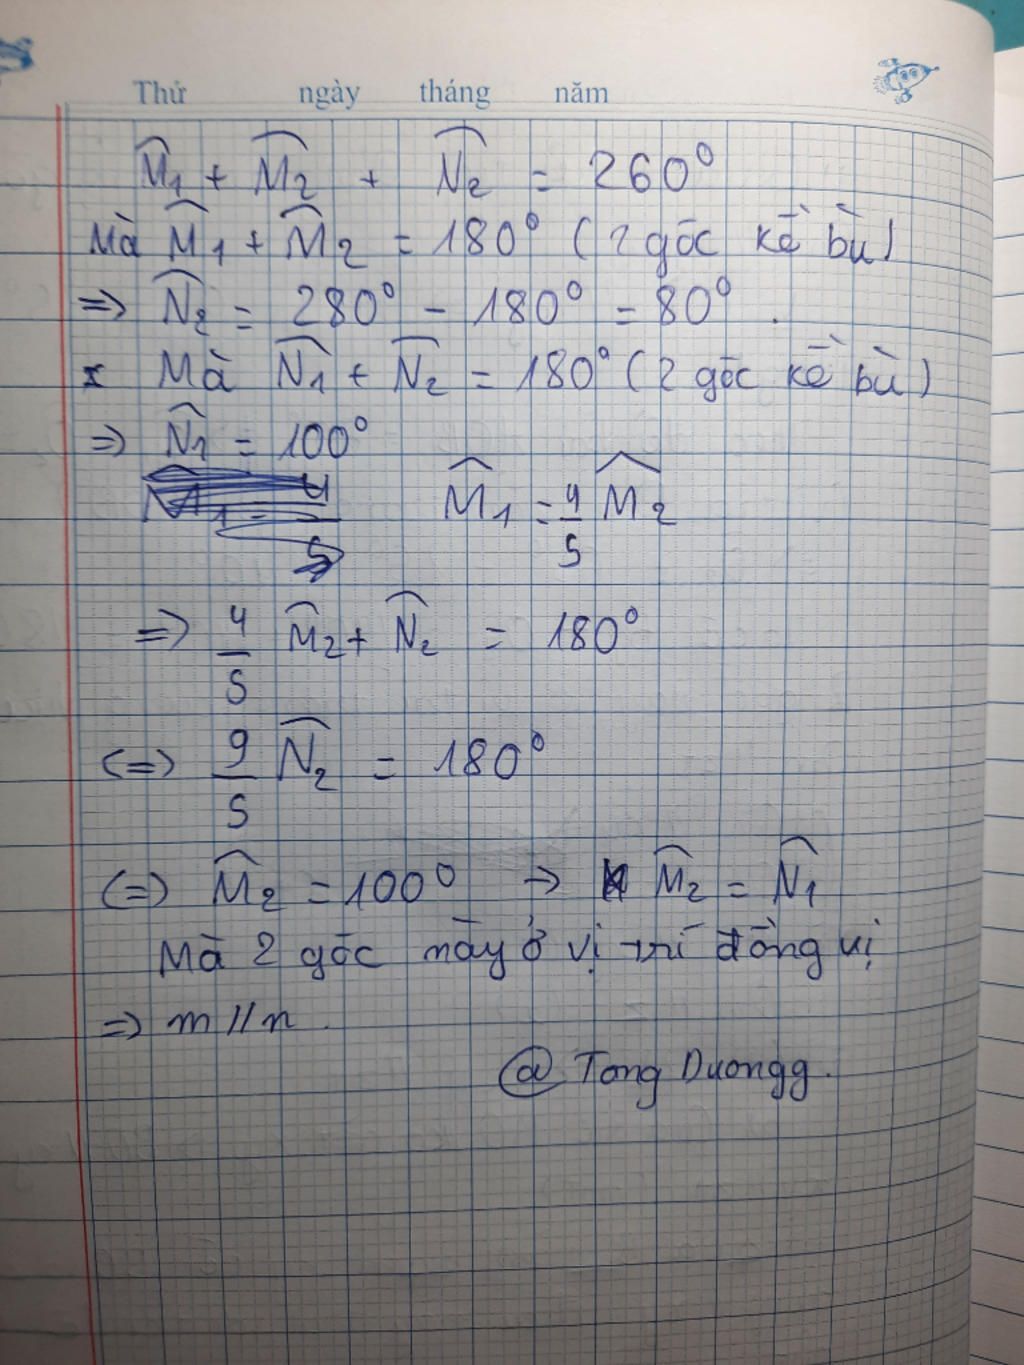 Thứ ngày tháng năm
M̂₁ + M̂₂ + N̂₂ = 260⁰
Mà M̂₁ + M̂₂ = 180⁰ (2 góc kề bù)
=> N̂₂ = 280⁰ - 180⁰ = 80⁰.
Mà N̂₁ + N̂₂ = 180⁰ (2 góc kề bù)
=> N̂₁ = 100⁰
M̂₁ = 4/5 M̂₂
=> 4/5 M̂₂ + N̂₂ = 180⁰
(=>) 9/5 N̂₂ = 180⁰
(=>) M̂₂ = 100⁰ → M̂₂ = N̂₁
Mà 2 góc này ở vị trí đồng vị
=> m // n.
@ Tong Duongg.